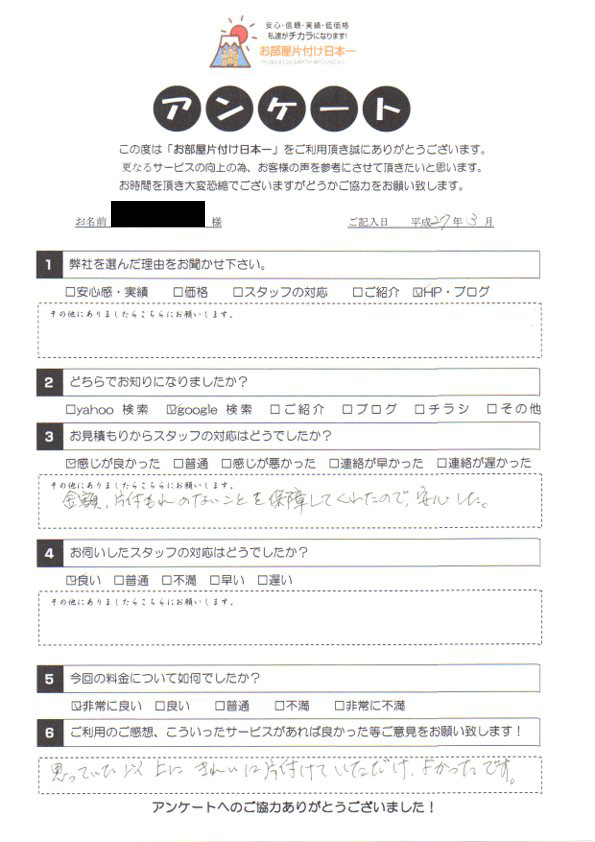 安心・信頼・実績・低価格
私達がチカラになります!
お部屋片付け日本一
Produced by EARTH AROUND inc.
アンケート
この度は「お部屋片付け日本一」をご利用頂き誠にありがとうございます。
更なるサービスの向上の為、お客様の声を参考にさせて頂きたいと思います。
お時間を頂き大変恐縮でございますがどうかご協力をお願い致します。
お名前 様 ご記入日 平成27年3月
1 弊社を選んだ理由をお聞かせ下さい。
□安心感・実績 □価格 □スタッフの対応 □ご紹介 ☑HP・ブログ
その他にありましたらこちらにお願いします。
2 どちらでお知りになりましたか?
□yahoo 検索 ☑google 検索 □ご紹介 □ブログ □チラシ □その他
3 お見積もりからスタッフの対応はどうでしたか?
☑感じが良かった □普通 □感じが悪かった □連絡が早かった □連絡が遅かった
その他にありましたらこちらにお願いします。
金額、片付もれのないことを保障してくれたので、安心した。
4 お伺いしたスタッフの対応はどうでしたか?
☑良い □普通 □不満 □早い □遅い
その他にありましたらこちらにお願いします。
5 今回の料金について如何でしたか?
☑非常に良い □良い □普通 □不満 □非常に不満
6 ご利用のご感想、こういったサービスがあれば良かった等ご意見をお願い致します!
思っていた以上にきれいに片付けていただけ、よかったです。
アンケートへのご協力ありがとうございました!